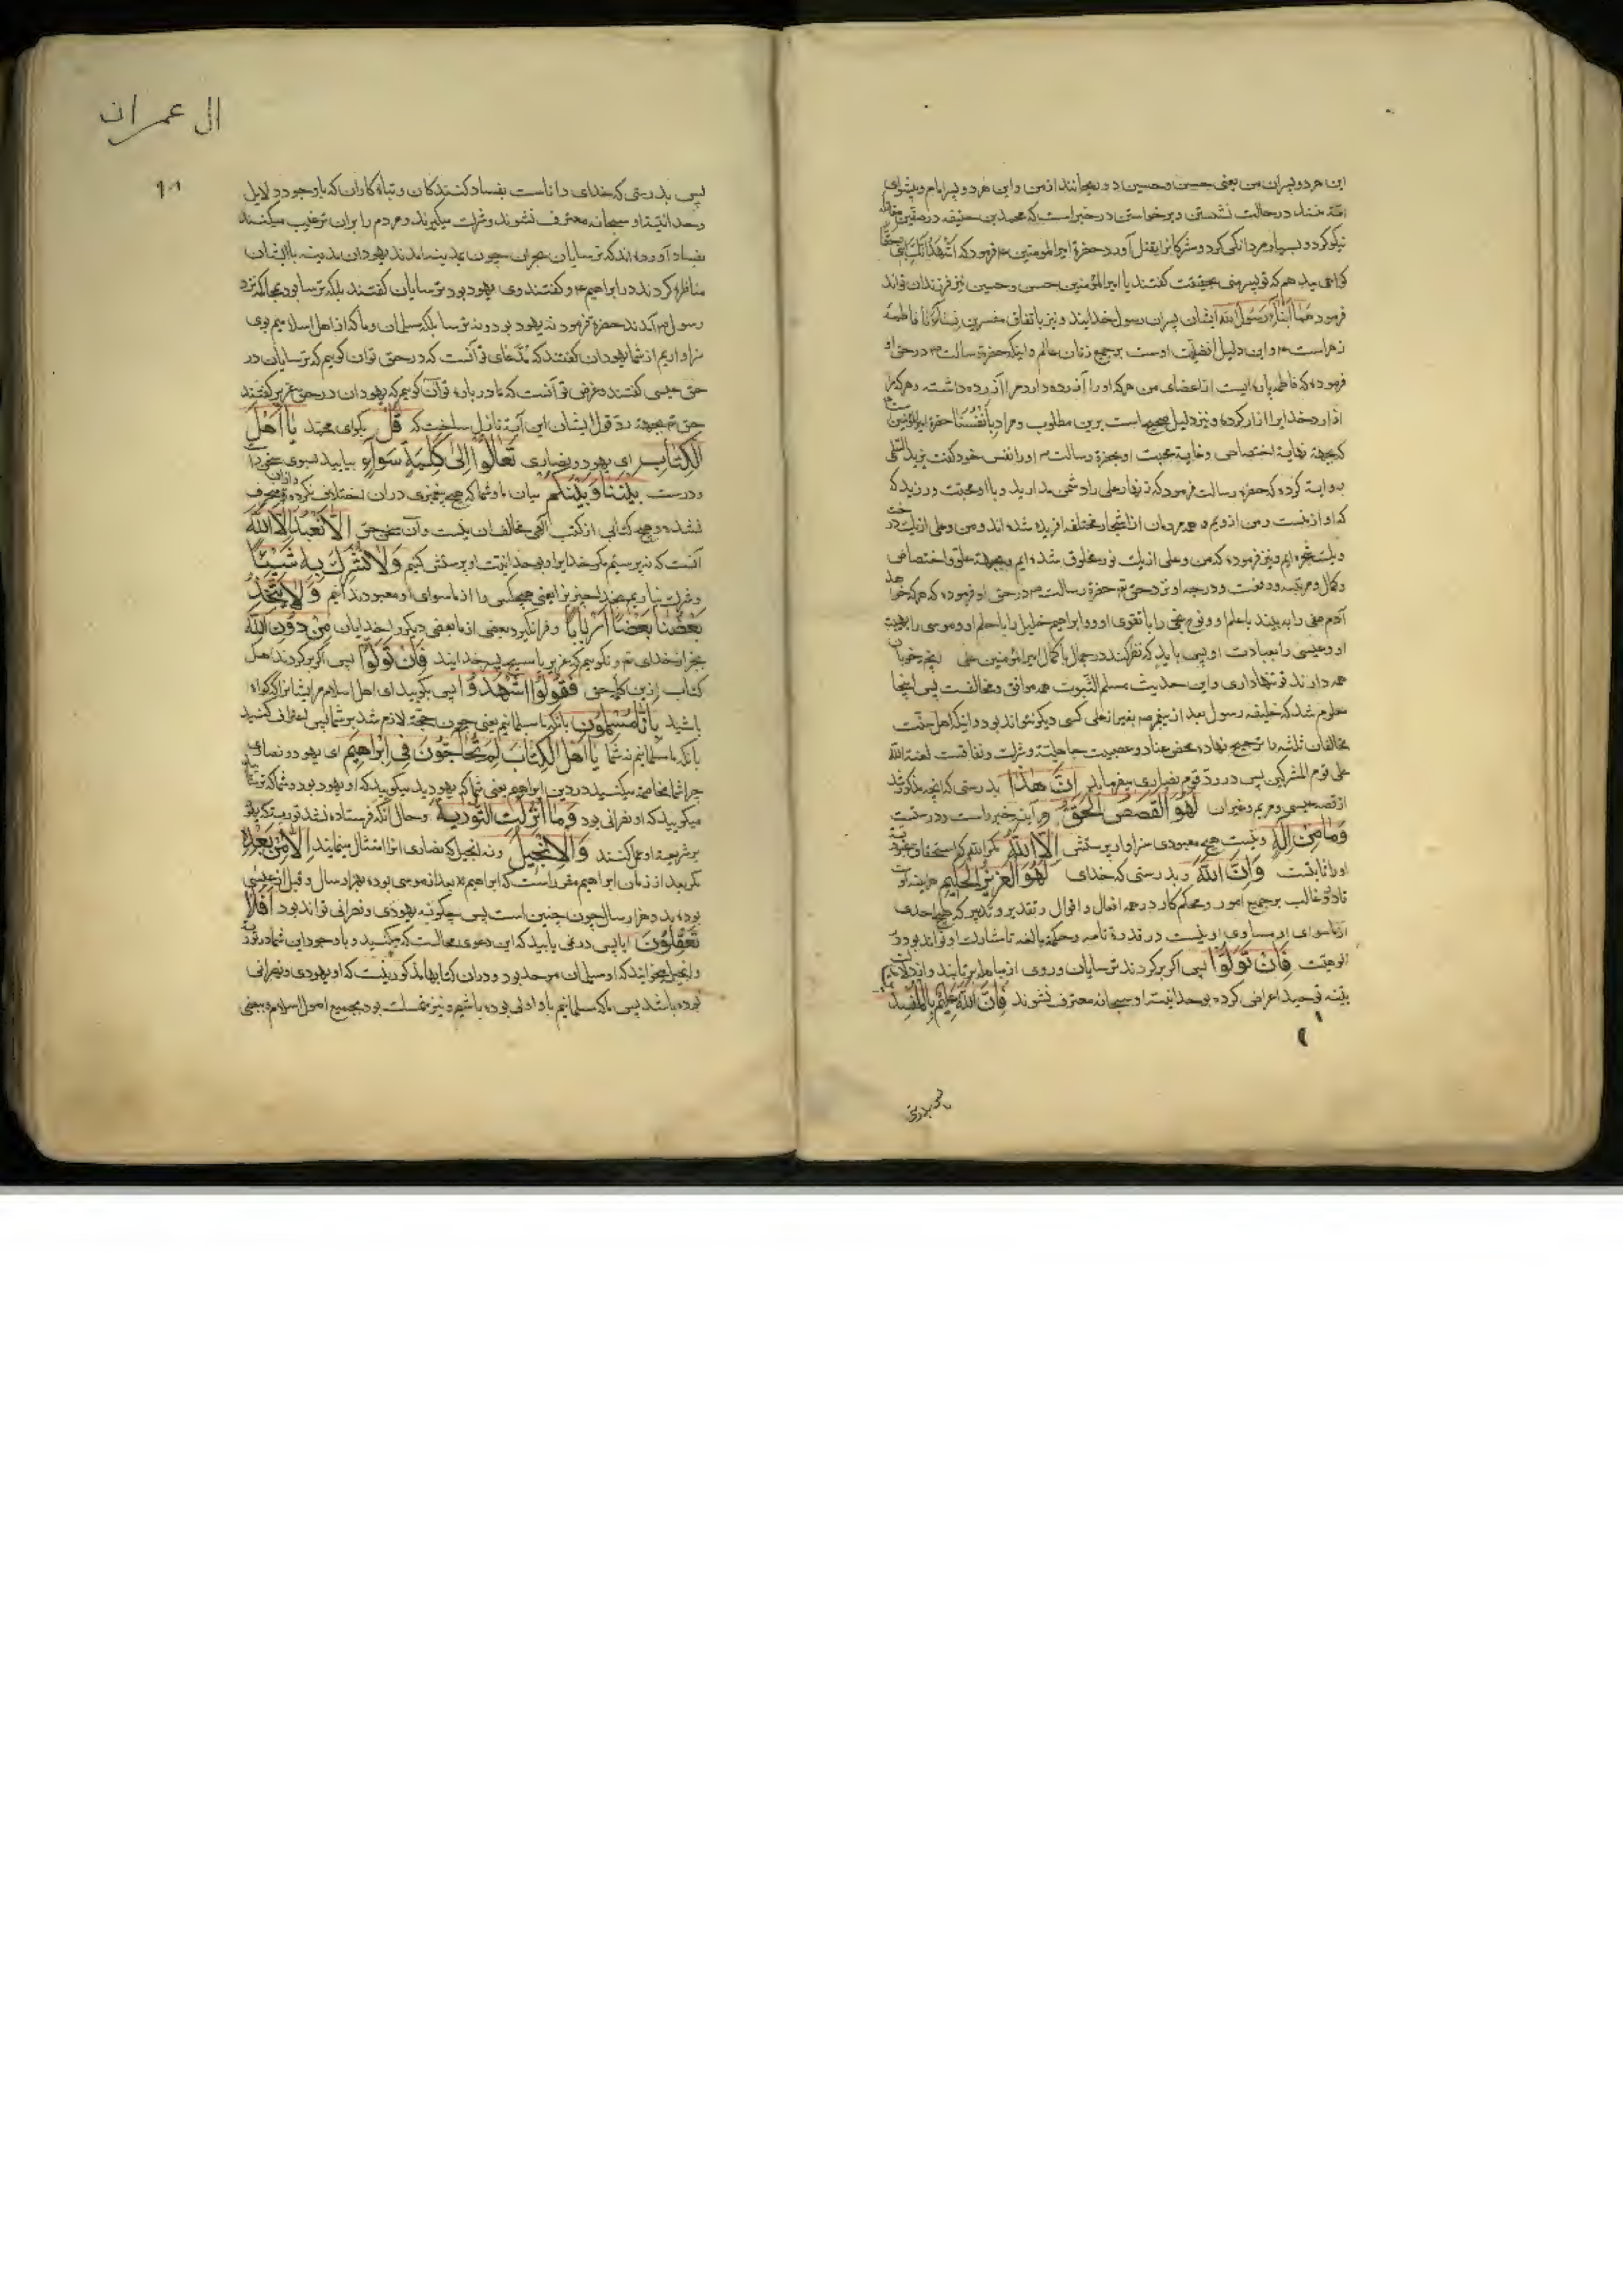 این هر دو پسران من یعنی حسن و حسین دو ریحانند از من و این هر دو پسر امام و پیشوای
امّة منند در حالت نشستن و برخواستن در خبر است که محمد بن حنفیه در صفین
نیکو کرد و بسیار مردانگی کرد و مشرکانرا بقتل آورد حضرة امیر المومنین ع فرمود که اشهد انک ابنی حقا
کواهی میدهم که تو پسر منی بحقیقت کفتند یا امیر المؤمنین حسن و حسین نیز فرزندان تواند
فرمود هما ابناء رسول الله ایشان پسران رسول خدایند و نیز باتفاق مفسرین نساءنا فاطمه
زهراست ع و این دلیل افضلیّت اوست بر جمیع زنان عالم و اینکه حضرة رسالت ص در حق او
فرموده که فاطمه پاره ایست از اعضای من هر که او را آزرده دارد مرا آزرده داشته و هر که مرا
ازارد خدایرا ازار کرده و نیز دلیل صحیح است برین مطلوب و مراد بانفسنا حضرة امیر المؤمنین
که بجهة نهایة اختصاص و غایة محبت او بحضرة رسالت ص او را نفس خود کفت
روایة کرده که حضرة رسالت فرمود که زنهار علی را دشمن مدارید و با او محبت ورزید که
که او از منست و من از ویم و همه مردمان از اشجار مختلفه افریده شده اند و من و علی از یک درخت
و یک شجره ایم و نیز فرموده که من و علی از یک نور مخلوق شده ایم و بجهة علو اختصاص
و کمال و مرتبه و رفعت و درجه او نزد حق تع حضرة رسالت ص در حق او فرموده که هر که خواهد
آدم صفی را به بیند با علم او و نوح نجی را با تقوی او و ابراهیم خلیل را با حلم او و موسی را با هیبت
او و عیسی را بعبادت او پس باید که نظر کند در جمال با کمال امیر المؤمنین علی انچه خوبان
همه دارند تو تنها داری و این حدیث مسلم الثبوت همه موافق و مخالفست پس اینجا
معلوم شد که خلیفه رسول بعد از پیغمبر ص بغیر از علی کسی دیکر نتواند بود و اینکه اهل سنّت
مخالفان ثلثه را ترجیح نهاده محض عناد و عصبیت جاهلیّة و شرک و نفاقست لعنة الله
علی قوم المشرکین پس در ردّ قوم نصاری میفرماید اِنَّ هٰذَا بدرستی که انچه مذکور شد
از قصه عیسی و مریم و غیران لَهُوَ الْقَصَصُ الْحَقُّ هر آینه خبر راست و درستت
وَمَا مِنْ اِلٰهٍ و نیست هیچ معبودی سزاوار پرستش اِلَّا اللهُ مکر الله که
او را ثابتست وَاِنَّ اللهَ و بدرستی که خدای لَهُوَ الْعَزِیْزُ الْحَکِیْمُ هراینه اوست
قادر و غالب بر جمیع امور و محکم کار در همه افعال و اقوال و تقدیر و تدبیر که هیچ احدی
از ماسوای او مساوی او نیست در قدرة تامه و حکمة بالغه تا مشارک او تواند بود در
الوهیّت فَاِنْ تَوَلَّوْا پس اکر برکردند ترسایان و روی از مباهله برتابند و از دلایل
بیّنه توحید اعراض کرده بوحدانیّت او سبحانه معترف نشوند فَاِنَّ اللهَ عَلِیْمٌ بِالْمُفْسِدِیْنَ
پس بدرستی
ال عمران
پس بدرستی که خدای داناست بفساد کنندکان و تباه کاران که با وجود دلایل
وحدانیّة او سبحانه معترف نشوند و شرک میکیرند و مردم را بران ترغیب میکنند
بفساد آورده اند که ترسایان نجران چون بمدینه امدند یهودان مدینه با ایشان
مناظره کردند در ابراهیم ع و کفتند وی یهود بود ترسایان کفتند بلکه ترسا بود بمحاکمه نزد
رسول ص آمدند حضرة فرمود نه یهود بود و نه ترسا بلکه مسلمان و ما که از اهل اسلامیم بوی
سزاواریم از شما یهودان کفتند که مدّعای تو آنست که در حق توان کویم که ترسایان در
حق عیسی کفتند و غرض تو آنست که ما در باره تو آن کوییم که یهودان در حق عزیر کفتند
حق تع بجهة ردّ قول ایشان این آیة نازل ساخت که قُلْ بکو ای محمد یَا اَهْلَ
الْکِتَابِ ای یهود و نصاری تَعَالَوْا اِلٰی کَلِمَةٍ سَوَاءٍ بیایید بسوی سخن راست
و درست بَیْنَنَا وَبَیْنَکُمْ میان ما و شما که هیچ پیغمبری دران اختلاف نکرده و منحرف
نشده و هیچ کتابی از کتب الهی مخالف ان نیست و آن سخن حق اَلَّا نَعْبُدَ اِلَّا اللهَ
آنست که نپرستیم مکر خدایرا و بوحدانیّت او پرستش کنیم وَلَا نُشْرِکَ بِهِ شَیْئًا
و شرک نیاریم بخدا چیزیرا یعنی هیچکس را از ماسوای او معبود ندانیم وَلَا یَتَّخِذَ
بَعْضُنَا بَعْضًا اَرْبَابًا و فرا نکیرد بعضی از ما بعضی دیکر را خدایان مِنْ دُوْنِ اللهِ
بجز از خدای تع و نکوییم که عزیر یا مسیح پسر خدایند فَاِنْ تَوَلَّوْا پس اکر برکردند اهل
کتاب ازین کلمه حق فَقُوْلُوا اشْهَدُوْا پس بکویید ای اهل اسلام مر ایشانرا که کواه
باشید بِاَنَّا مُسْلِمُوْنَ بانکه ما مسلمانیم یعنی چون حجّة لازم شد بر شما پس اعتراف کنید
بانکه ما مسلمانیم نه شما یَا اَهْلَ الْکِتَابِ لِمَ تُحَاجُّوْنَ فِیْ اِبْرَاهِیْمَ ای یهود و نصاری
چرا شما مخاصمه میکشید در دین ابراهیم یعنی شما که یهودید میکویید که او یهود بود و شما که ترسایید
میکویید که او نصرانی بود وَمَا اُنْزِلَتِ التَّوْرٰیةُ و حال آنکه فرستاده نشد توریة که یهود
بر شریعة او عمل کنند وَالْاِنْجِیْلُ و نه انجیل که نصاری انرا امتثال مینمایند اِلَّا مِنْ بَعْدِهِ
مکر بعد از زمان ابراهیم مقرر است که ابراهیم ع بعد از موسی بوده بهزار سال و قبل از عیسی
بوده بدو هزار سال چون چنین است پس چکونه یهودی و نصرانی تواند بود اَفَلَا
تَعْقِلُوْنَ ایا پس در نمی یابید که این دعوی محالست که میکنید و با وجود این شما در توریة
و انجیل میخوانید که او مسلمان موحد بود و دران کتابها مذکور نیست که او یهودی و نصرانی
بوده باشد پس ما که مسلمانیم باو اولی بوده باشیم و نیز متمسک بود بجمیع اصول اسلام و ببعضی